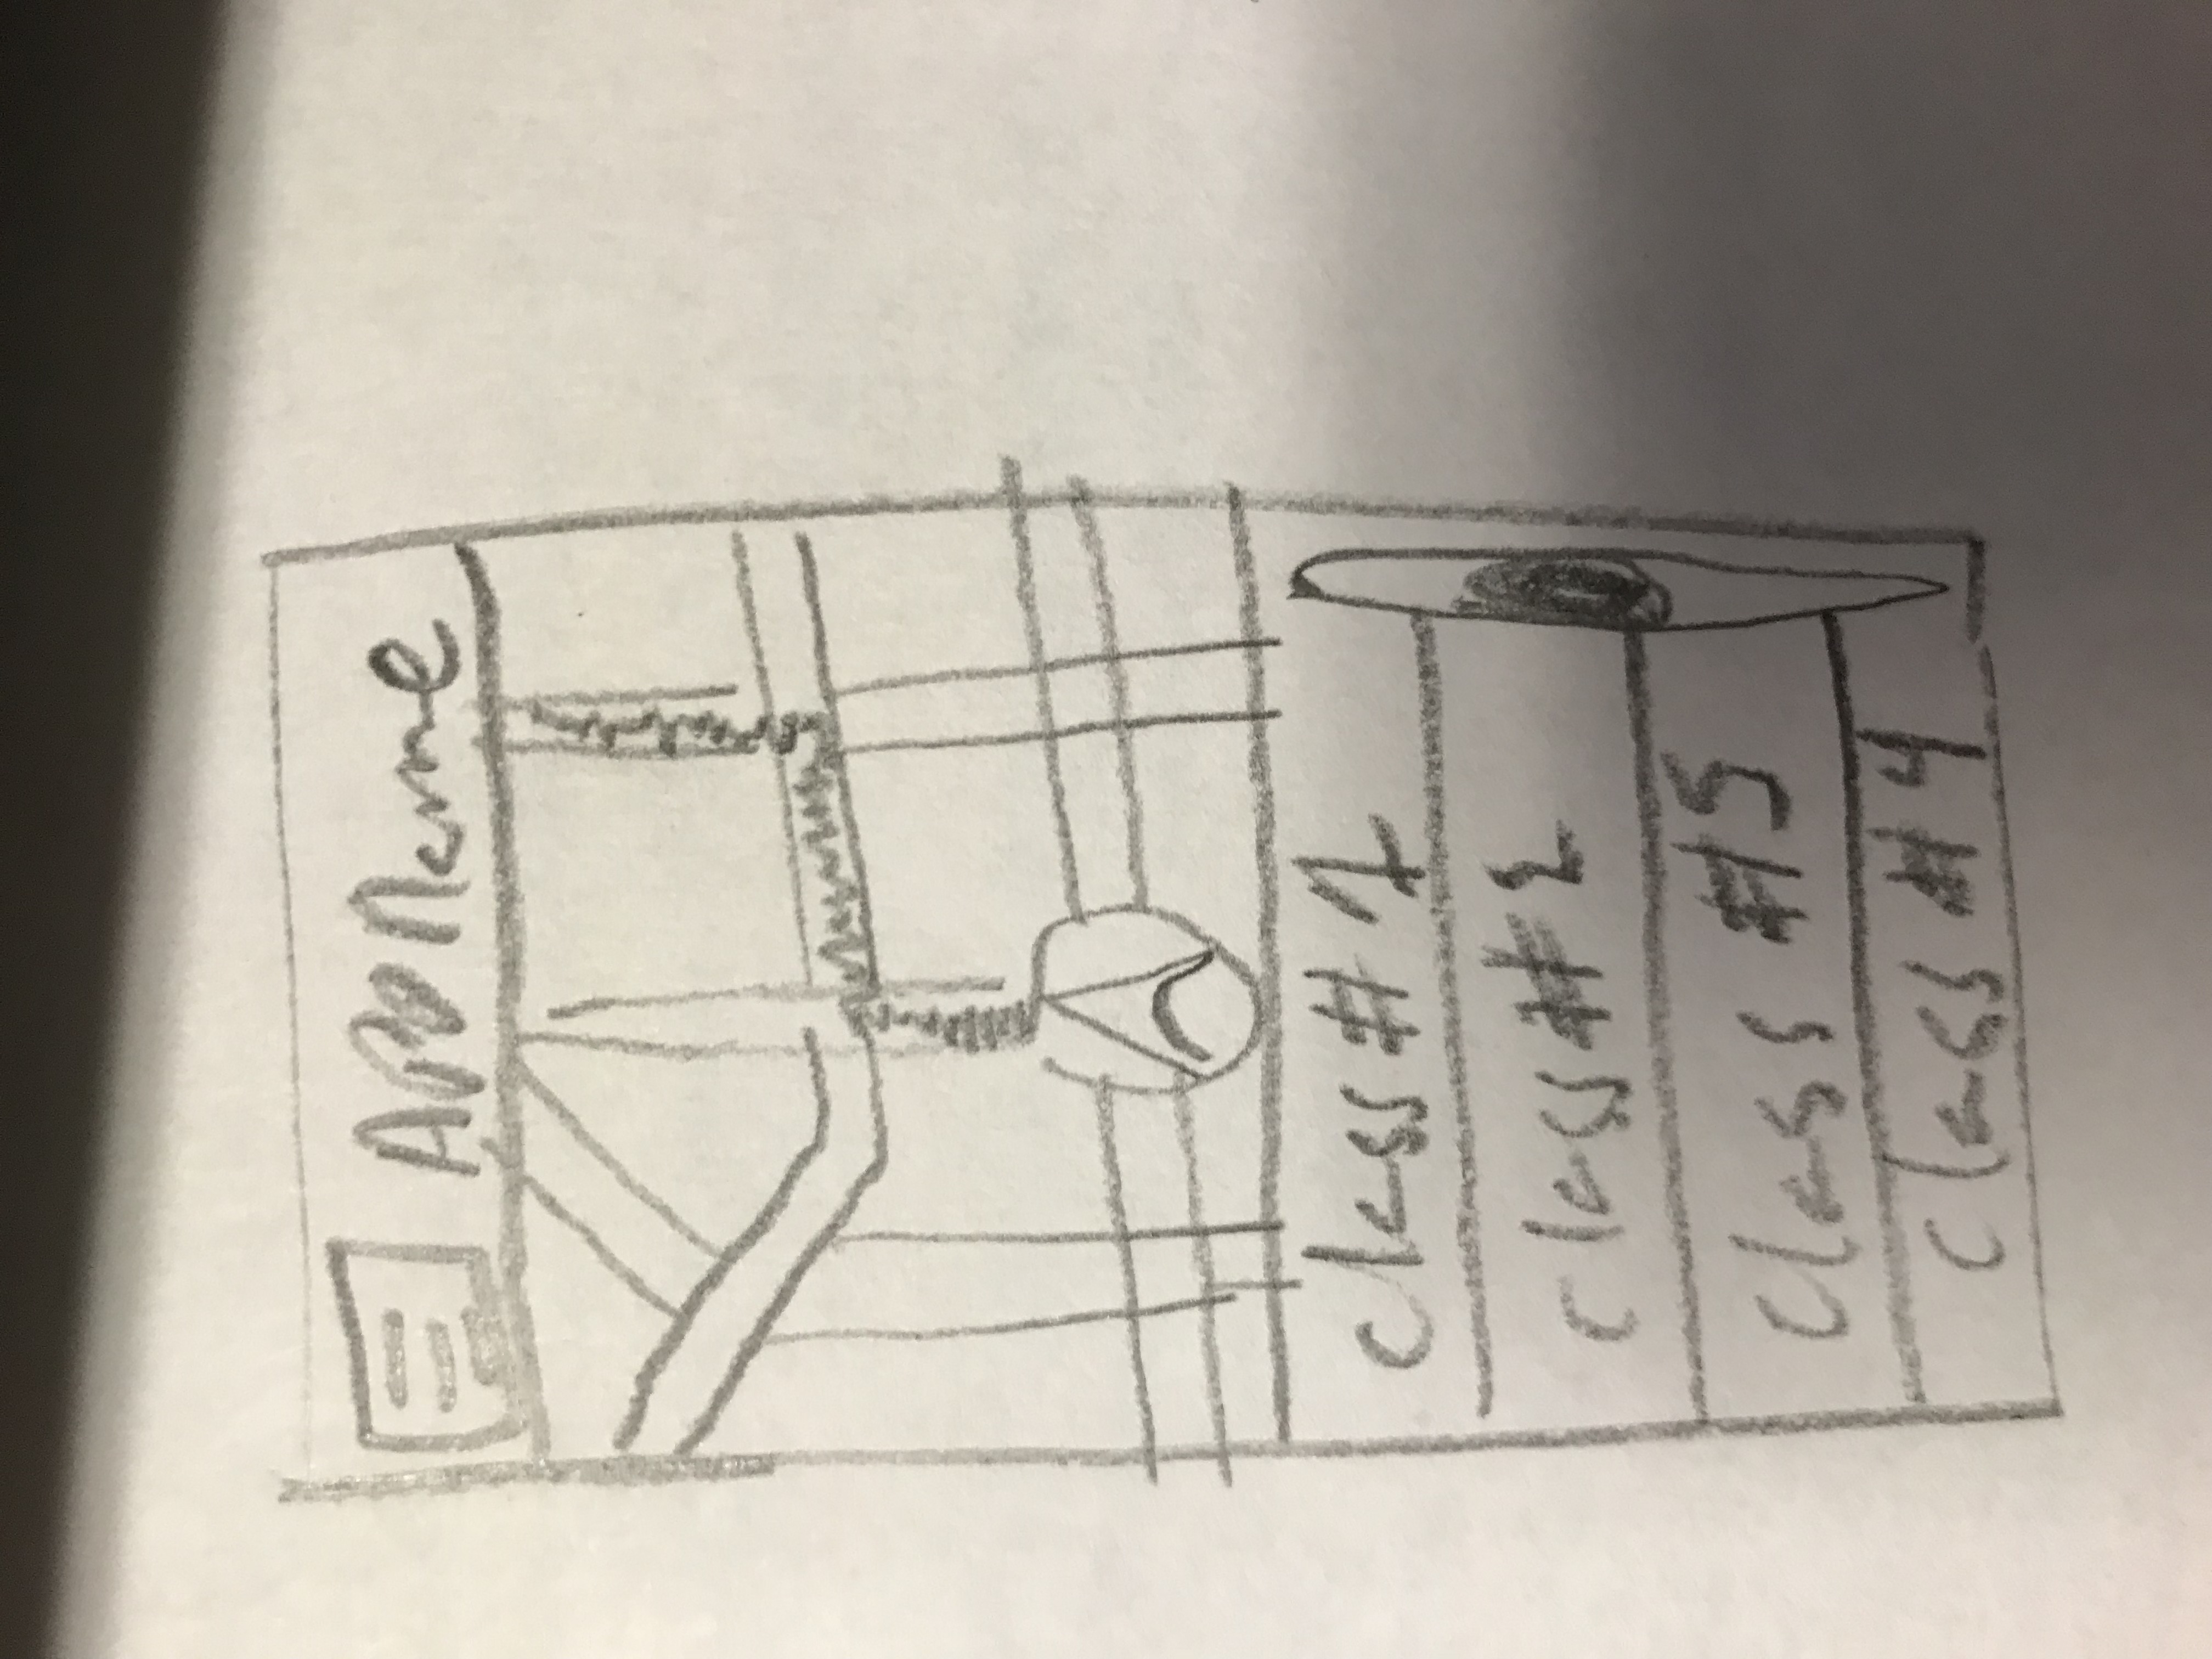 APP Name
class # 1
class # 2
class # 5
class # 4